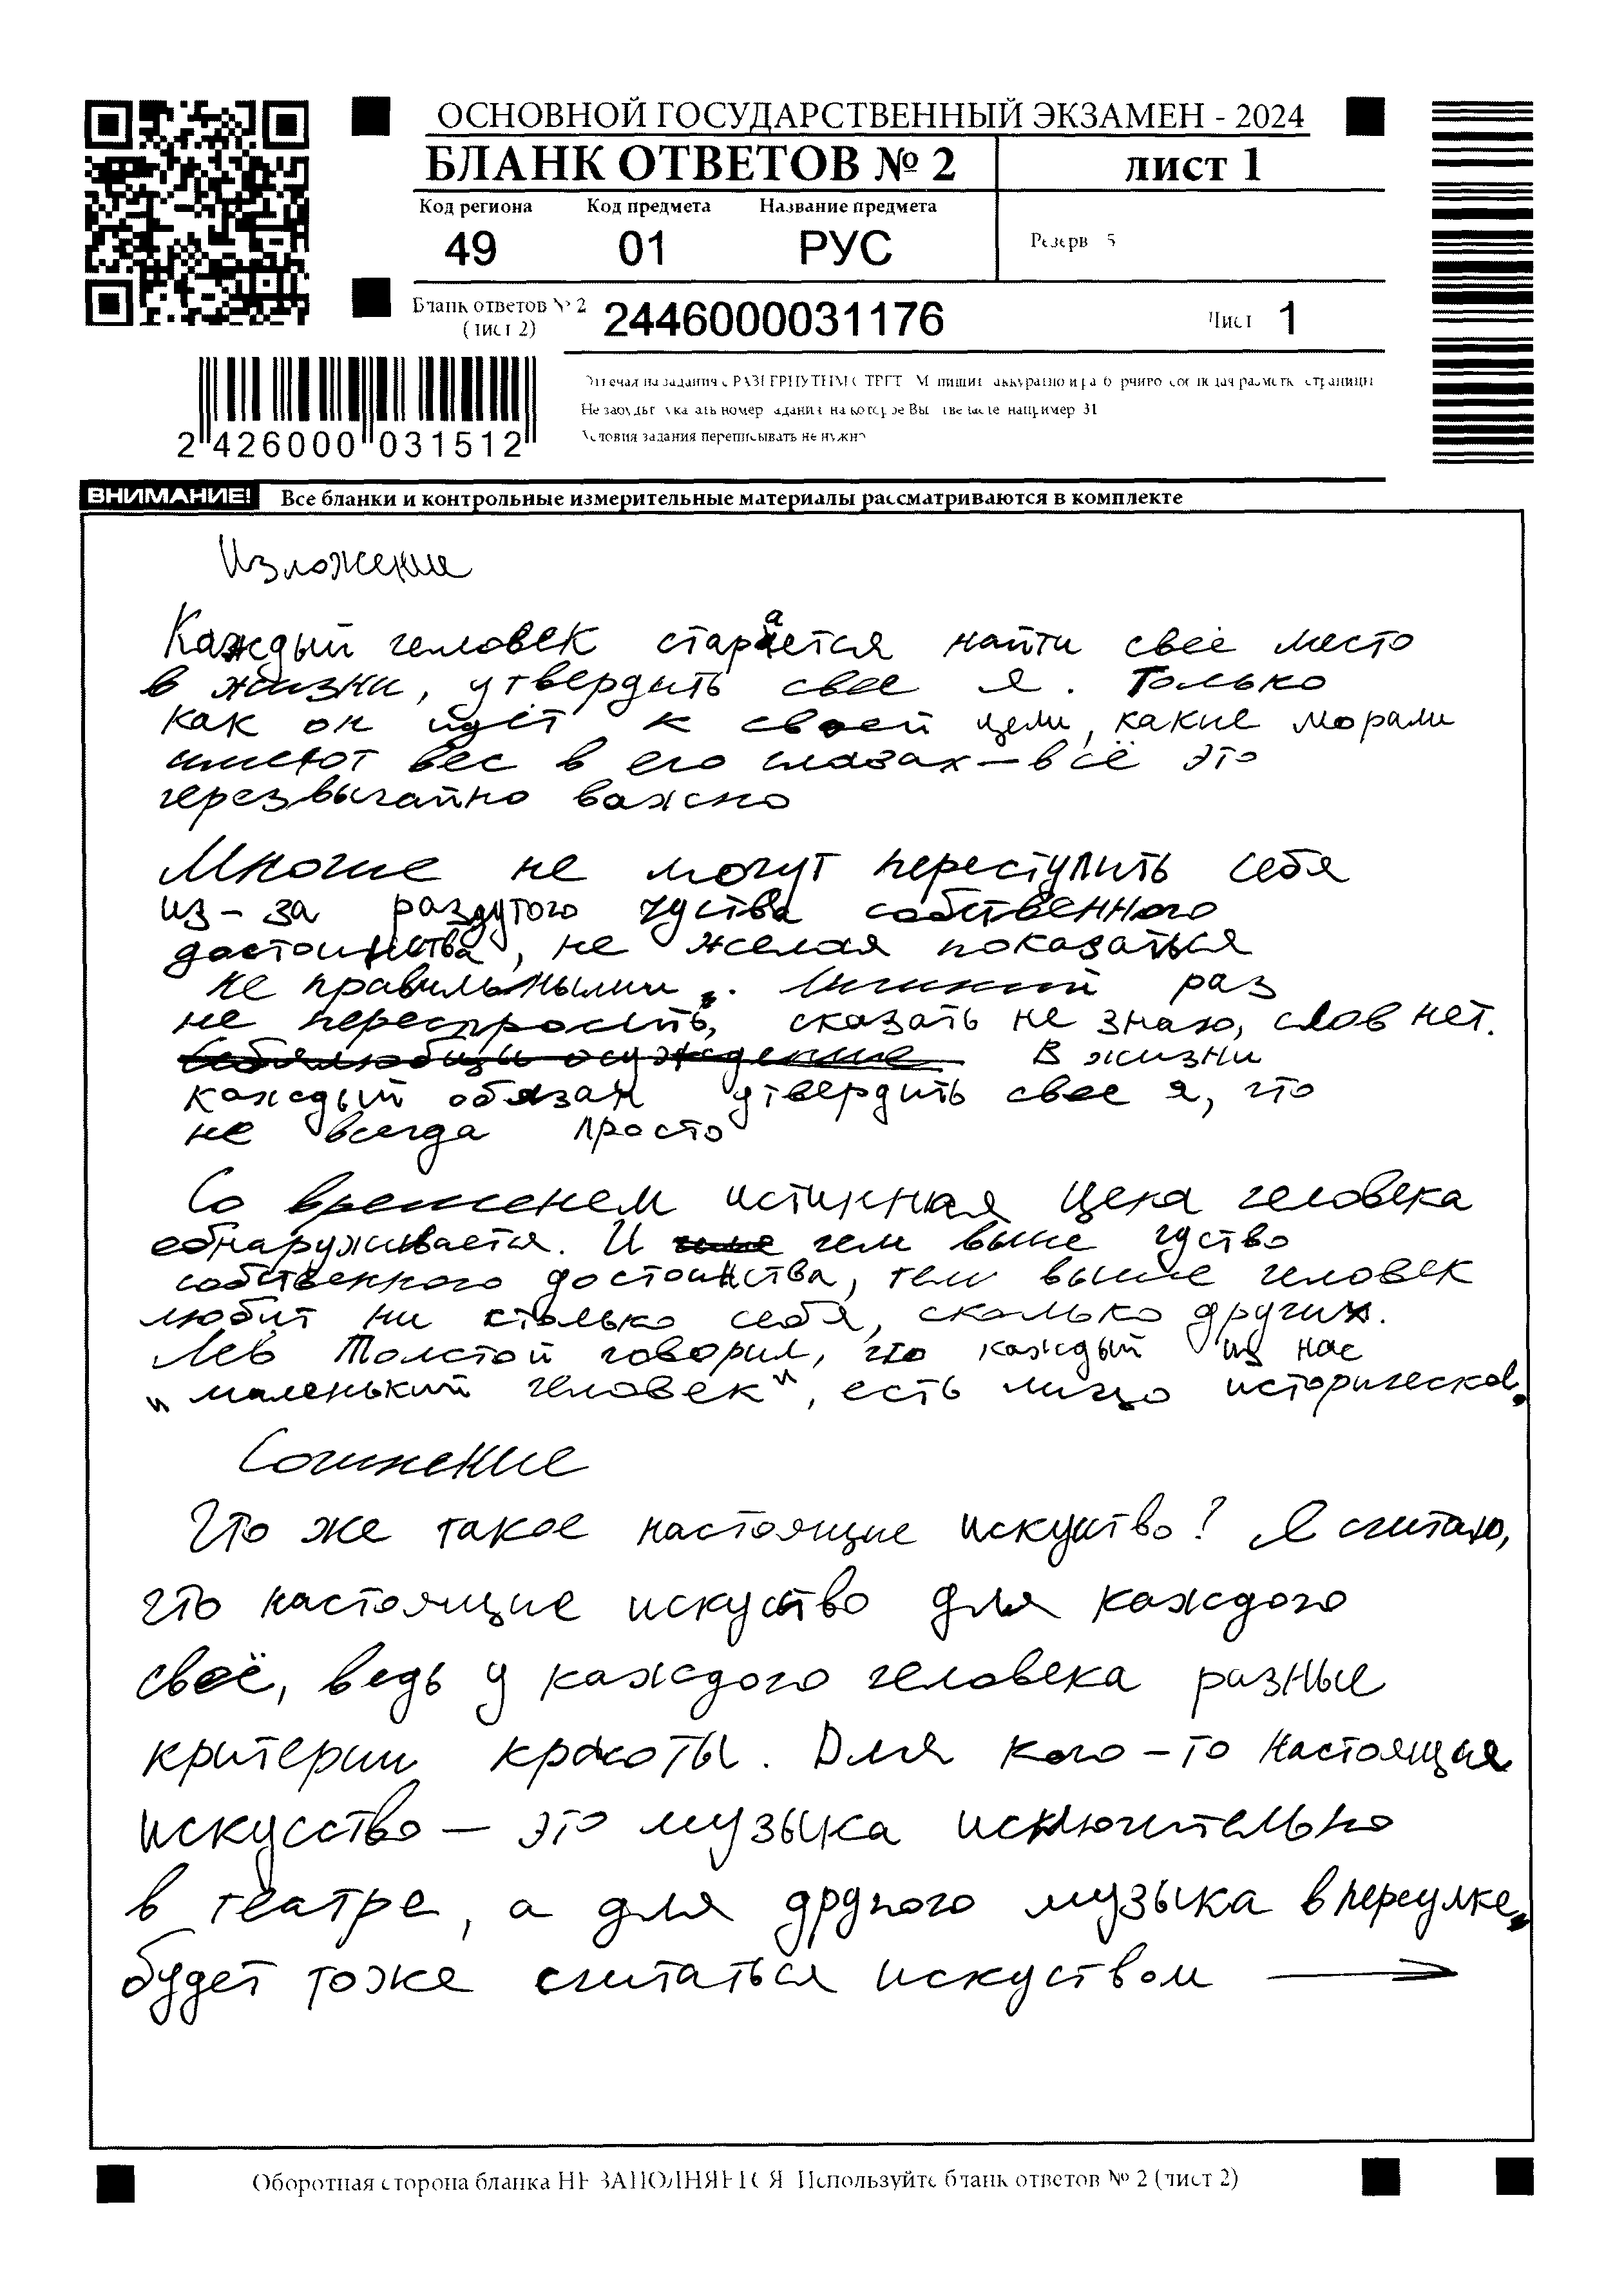 ОСНОВНОЙ ГОСУДАРСТВЕННЫЙ ЭКЗАМЕН - 2024
БЛАНК ОТВЕТОВ № 2
лист 1
Код региона Код предмета Название предмета
49 01 РУС
Резерв 5
Бланк ответов № 2
(лист 2)
2446000031176
Лист 1
Отвечая на задания с РАЗВЕРНУТЫМ ОТВЕТОМ пишите аккуратно и разборчиво соблюдая разметку страницы
Не забудьте указать номер задания на которое Вы отвечаете например 31
Условия задания переписывать не нужно
2 426000 031512
ВНИМАНИЕ! Все бланки и контрольные измерительные материалы рассматриваются в комплекте
Изложение
Каждый человек старается найти своё место
в жизни, утвердить свое я. Только
как он идёт к своей цели, какие морали
имеют вес в его глазах – всё это
черезвычайно важно
Многие не могут переступить себя
из-за раздутого чуства собственного
достоинства, не желая показаться
не правильными. Лишний раз
не переспросить, сказать не знаю, слов нет.
В жизни
каждый обязан утвердить свое я, что
не всегда просто
Со временем истинная цена человека
обнаруживается. И чем выше чуство
собственного достоинства, тем выше человек
любит ни столько себя, сколько других.
Лев Толстой говорил, что каждый из нас
"маленький человек", есть лицо историческое.
Сочинение
Что же такое настоящие искуство? Я считаю,
что настоящие искуство для каждого
своё, ведь у каждого человека разные
критерии красоты. Для кого-то настоящия
искусство – это музыка исключительно
в театре, а для другого музыка в переулке,
будет тоже считаться искуством →
Оборотная сторона бланка НЕ ЗАПОЛНЯЕТСЯ Используйте бланк ответов № 2 (лист 2)